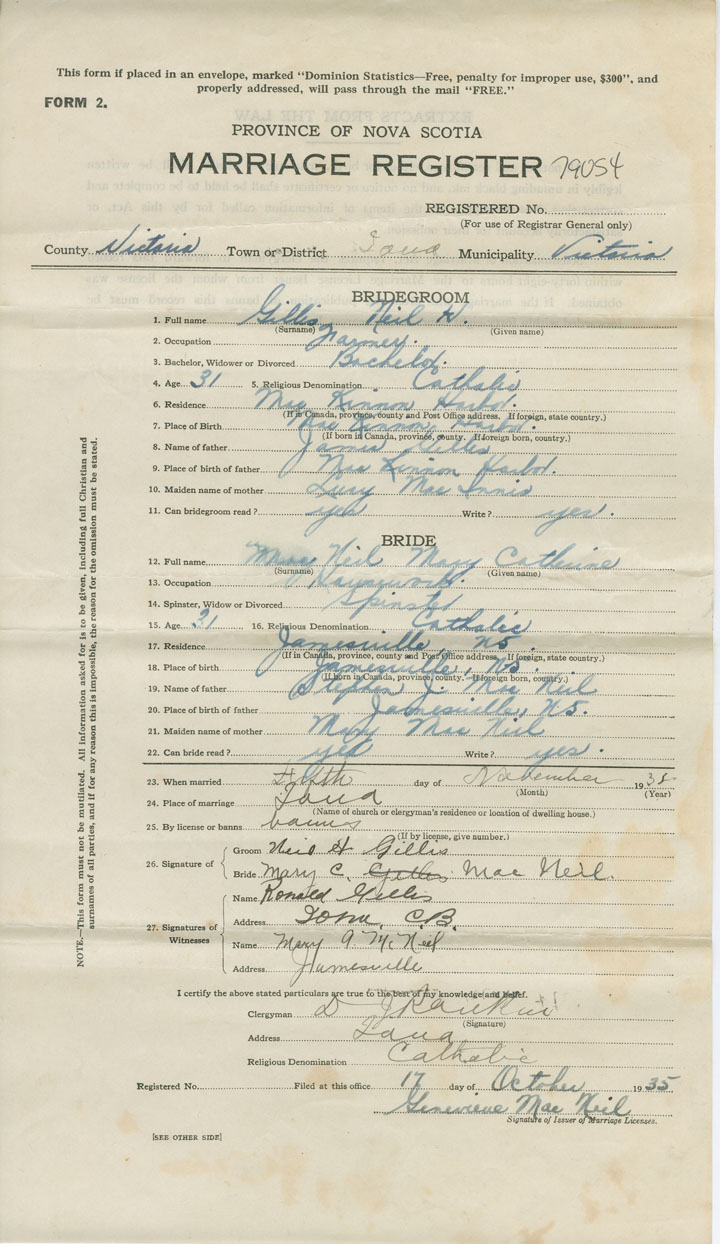 This form if placed in an envelope, marked "Dominion Statistics—Free, penalty for improper use, $300", and
properly addressed, will pass through the mail "FREE."
FORM 2.
PROVINCE OF NOVA SCOTIA
MARRIAGE REGISTER 79054
REGISTERED No.
(For use of Registrar General only)
County Victoria Town or District Iona Municipality Victoria
BRIDEGROOM
1. Full name Gillis Neil H.
(Surname) (Given name)
2. Occupation Farmer.
3. Bachelor, Widower or Divorced Bachelor.
4. Age 31 5. Religious Denomination Catholic
6. Residence Mac Kinnon Harbor.
(If in Canada, province, county and Post Office address. If foreign, state country.)
7. Place of Birth Mac Kinnon Harbor.
(If born in Canada, province, county. If foreign born, country.)
8. Name of father James Gillis
9. Place of birth of father Mac Kinnon Harbor.
10. Maiden name of mother Lucy Mac Innis
11. Can bridegroom read? yes Write? yes.
BRIDE
12. Full name Mac Neil Mary Catherine
(Surname) (Given name)
13. Occupation Housework.
14. Spinster, Widow or Divorced Spinster
15. Age 31 16. Religious Denomination Catholic
17. Residence Jamesville, NS.
(If in Canada, province, county and Post Office address. If foreign, state country.)
18. Place of birth Jamesville, NS.
(If born in Canada, province, county. If foreign born, country.)
19. Name of father Stephen J. Mac Neil
20. Place of birth of father Jamesville, NS.
21. Maiden name of mother Mary Mac Neil
22. Can bride read? yes Write? yes.
23. When married day of November 19
(Month) (Year)
24. Place of marriage Iona
(Name of church or clergyman's residence or location of dwelling house.)
25. By license or banns banns
(If by license, give number.)
26. Signature of
Groom Neil H Gillis
Bride Mary C. Gillis Mac Neil.
27. Signatures of Witnesses
Name Ronald Gillis
Address Iona, C.B.
Name Mary A. McNeil
Address Jamesville
I certify the above stated particulars are true to the best of my knowledge and belief.
Clergyman D J Rankin
(Signature)
Address Iona
Religious Denomination Catholic
Registered No. Filed at this office 17 day of October 1935
Genevieve Mac Neil
Signature of Issuer of Marriage Licenses.
[SEE OTHER SIDE]
NOTE.—This form must not be mutilated. All information asked for is to be given, including full Christian and
surnames of all parties, and if for any reason this is impossible, the reason for the omission must be stated.